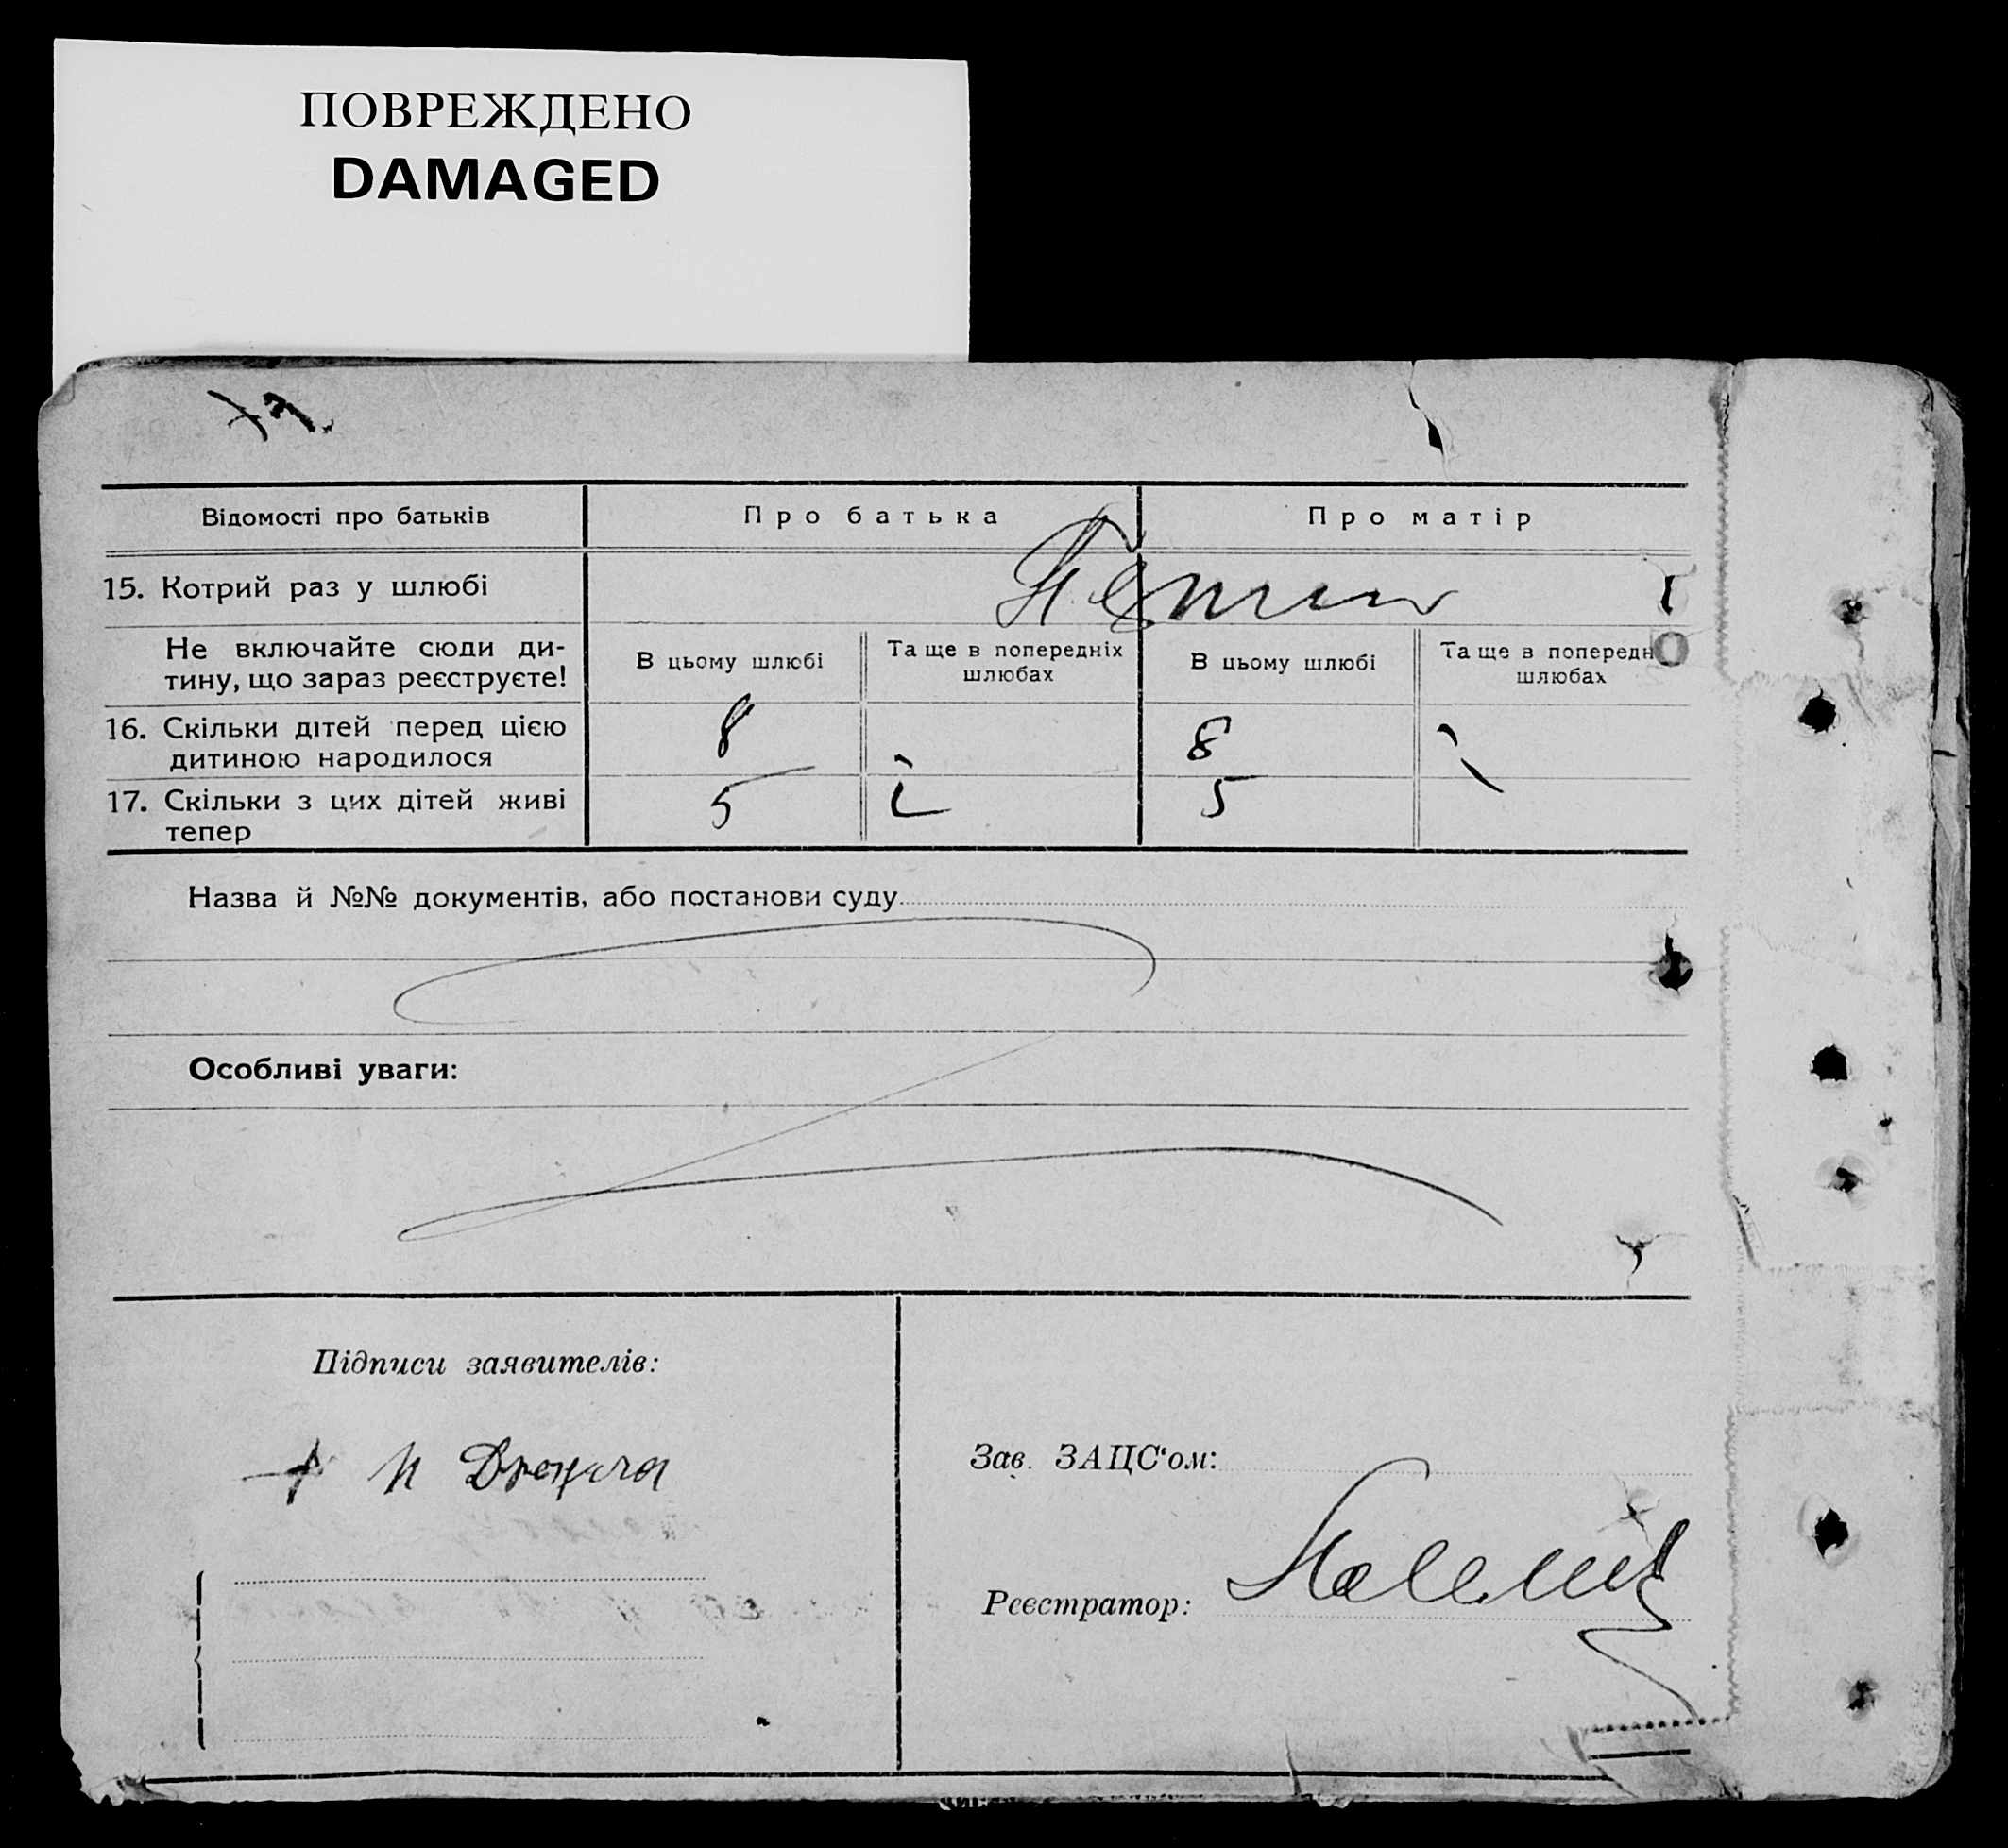 ПОВРЕЖДЕНО
DAMAGED
Відомості про батьків
Про батька
Про матір
15. Котрий раз у шлюбі
Не включайте сюди ди-
тину, що зараз реєструєте!
В цьому шлюбі
Та ще в попередніх
шлюбах
В цьому шлюбі
Та ще в попередн
шлюбах
16. Скільки дітей перед цією
дитиною народилося
8
8
17. Скільки з цих дітей живі
тепер
5
5
Назва й №№ документів, або постанови суду
Особливі уваги:
Підписи заявителів:
Зав. ЗАЦС'ом:
Реєстратор: